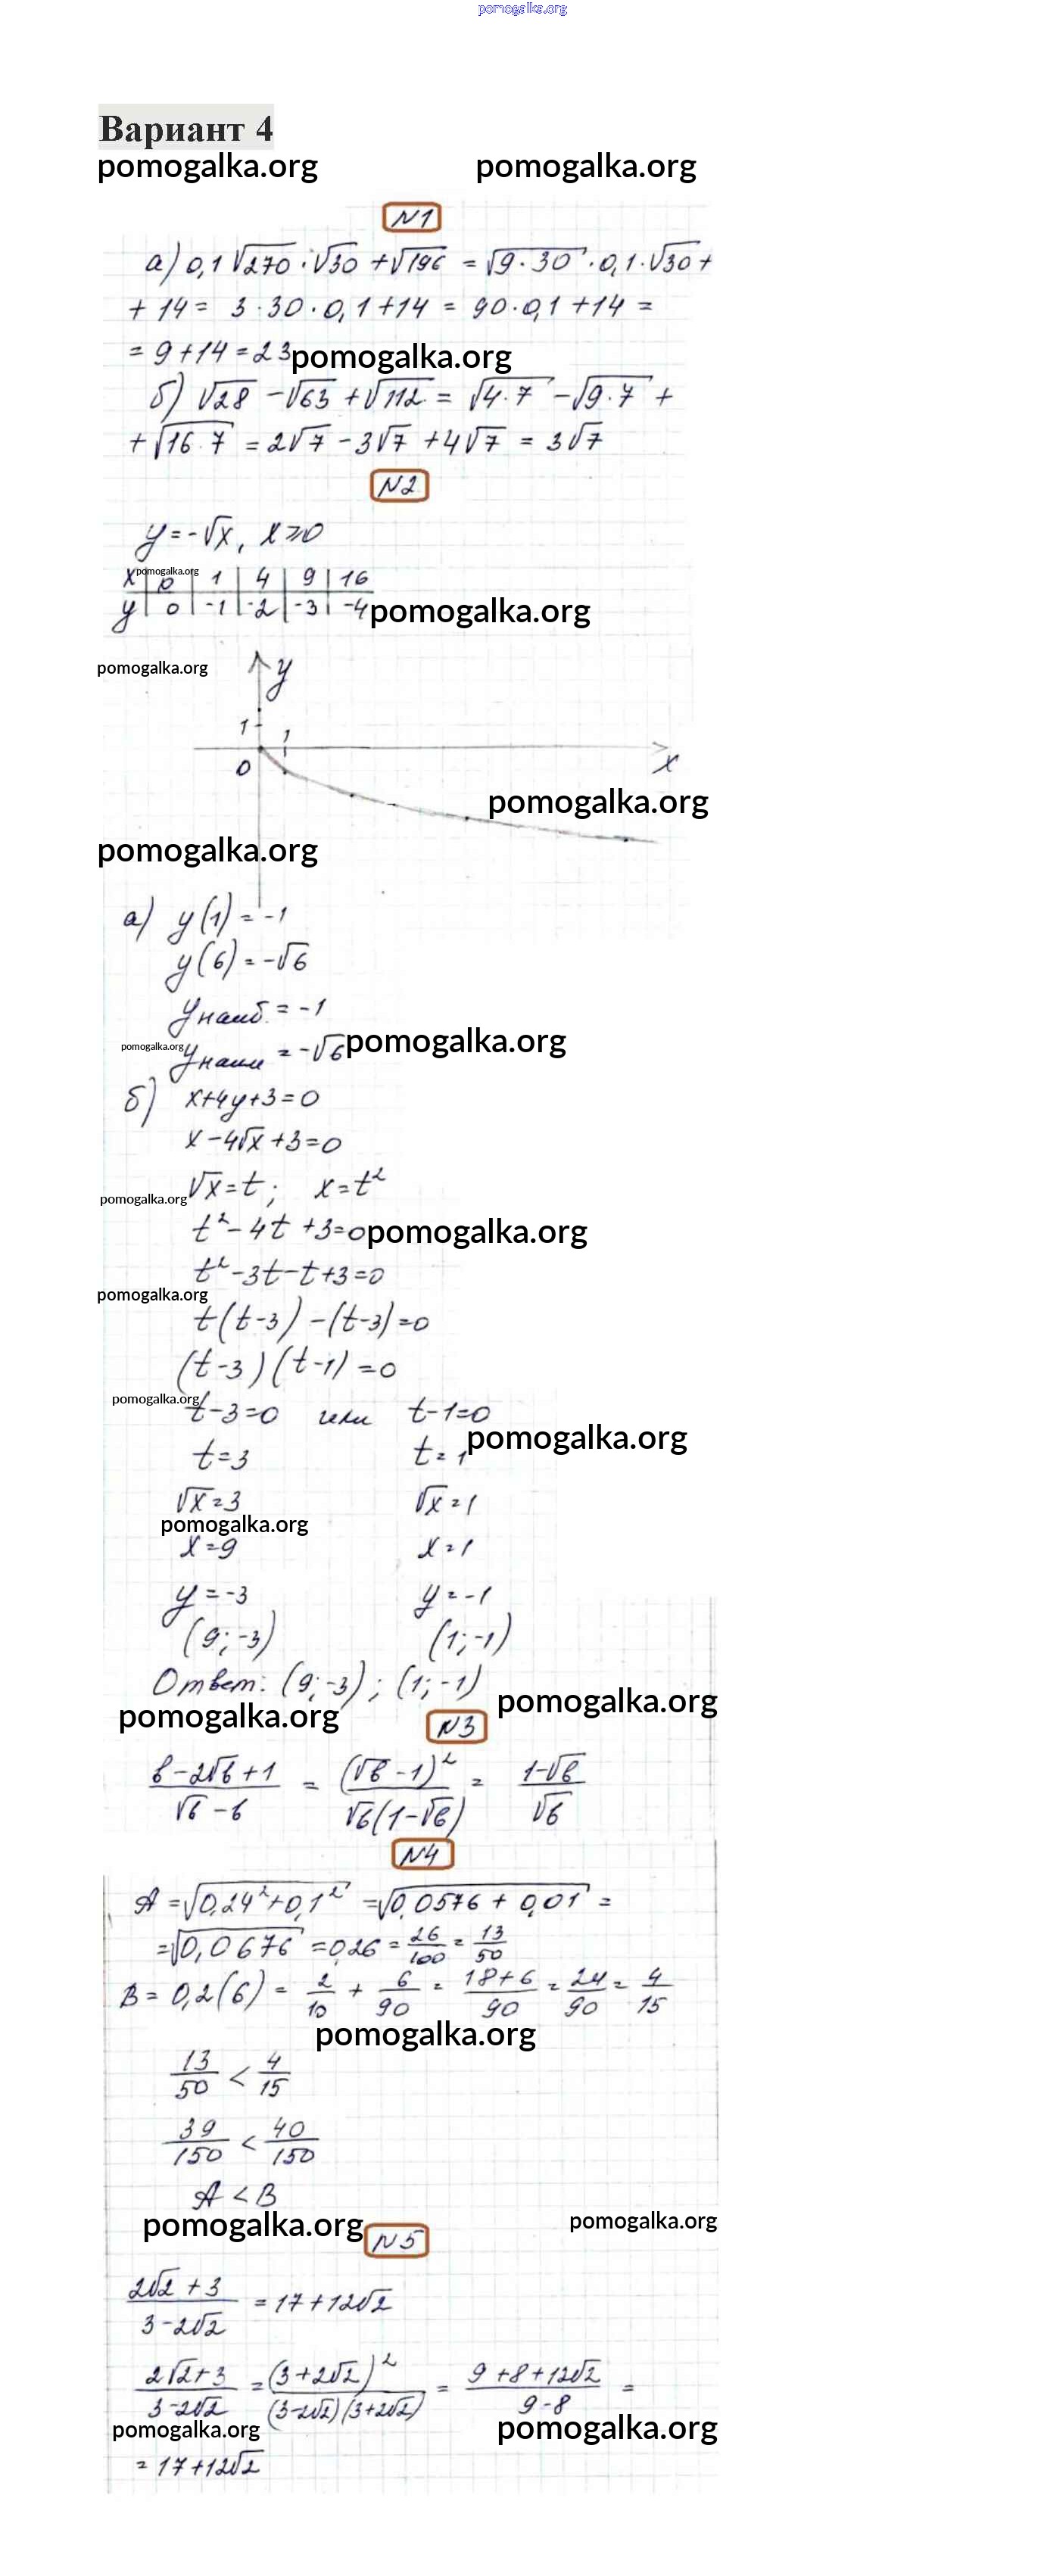 pomogalka.org
Вариант 4
pomogalka.org pomogalka.org
N1
а) 0,1√270 · √30 + √196 = √9·30 · 0,1 · √30 +
+ 14 = 3 · 30 · 0,1 + 14 = 90 · 0,1 + 14 =
= 9 + 14 = 23 pomogalka.org
б) √28 - √63 + √112 = √4·7 - √9·7 +
+ √16·7 = 2√7 - 3√7 + 4√7 = 3√7
N2
y = -√x, x ⩾ 0
x | 0 | 1 | 4 | 9 | 16
pomogalka.org
y | 0 | -1 | -2 | -3 | -4 pomogalka.org
pomogalka.org y
1 1
0 x
pomogalka.org
pomogalka.org
а) y(1) = -1
y(6) = -√6
y наиб. = -1
pomogalka.org y наим = -√6 pomogalka.org
б) x+4y+3=0
x - 4√x + 3 = 0
pomogalka.org √x = t; x = t²
t² - 4t + 3 = 0 pomogalka.org
t² - 3t - t + 3 = 0
pomogalka.org
t(t-3) - (t-3) = 0
(t-3)(t-1) = 0
pomogalka.org
t-3=0 или t-1=0
t=3 t=1 pomogalka.org
√x=3 √x=1
pomogalka.org
x=9 x=1
y=-3 y=-1
(9;-3) (1;-1)
Ответ: (9;-3); (1;-1) pomogalka.org
pomogalka.org N3
(b - 2√b + 1)/(√b - b) = (√b - 1)²/(√b(1-√b)) = (1-√b)/√b
N4
A = √0,24²+0,1² = √0,0576 + 0,01 =
= √0,0676 = 0,26 = 26/100 = 13/50
B = 0,2(6) = 2/10 + 6/90 = (18+6)/90 = 24/90 = 4/15
pomogalka.org
13/50 < 4/15
39/150 < 40/150
A < B
pomogalka.org pomogalka.org
N5
(2√2 + 3)/(3 - 2√2) = 17 + 12√2
(2√2+3)/(3-2√2) = (3+2√2)²/((3-2√2)(3+2√2)) = (9+8+12√2)/(9-8) =
pomogalka.org pomogalka.org
= 17+12√2